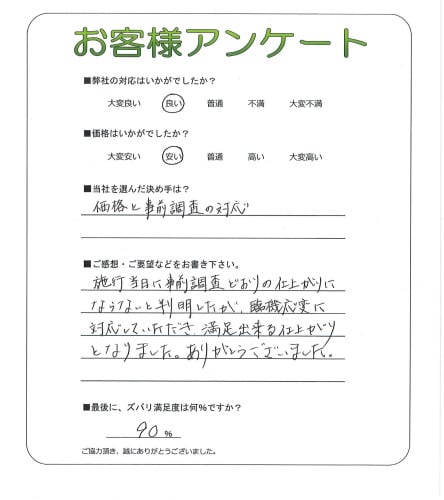 お客様アンケート
■弊社の対応はいかがでしたか？
大変良い 良い 普通 不満 大変不満
■価格はいかがでしたか？
大変安い 安い 普通 高い 大変高い
■当社を選んだ決め手は？
価格と事前調査の対応
■ご感想・ご要望などをお書き下さい。
施行当日に事前調査どおりの仕上がりに
ならないと判明したが、臨機応変に
対応していただき、満足出来る仕上がり
となりました。ありがとうございました。
■最後に、ズバリ満足度は何％ですか？
90 %
ご協力頂き、誠にありがとうございました。